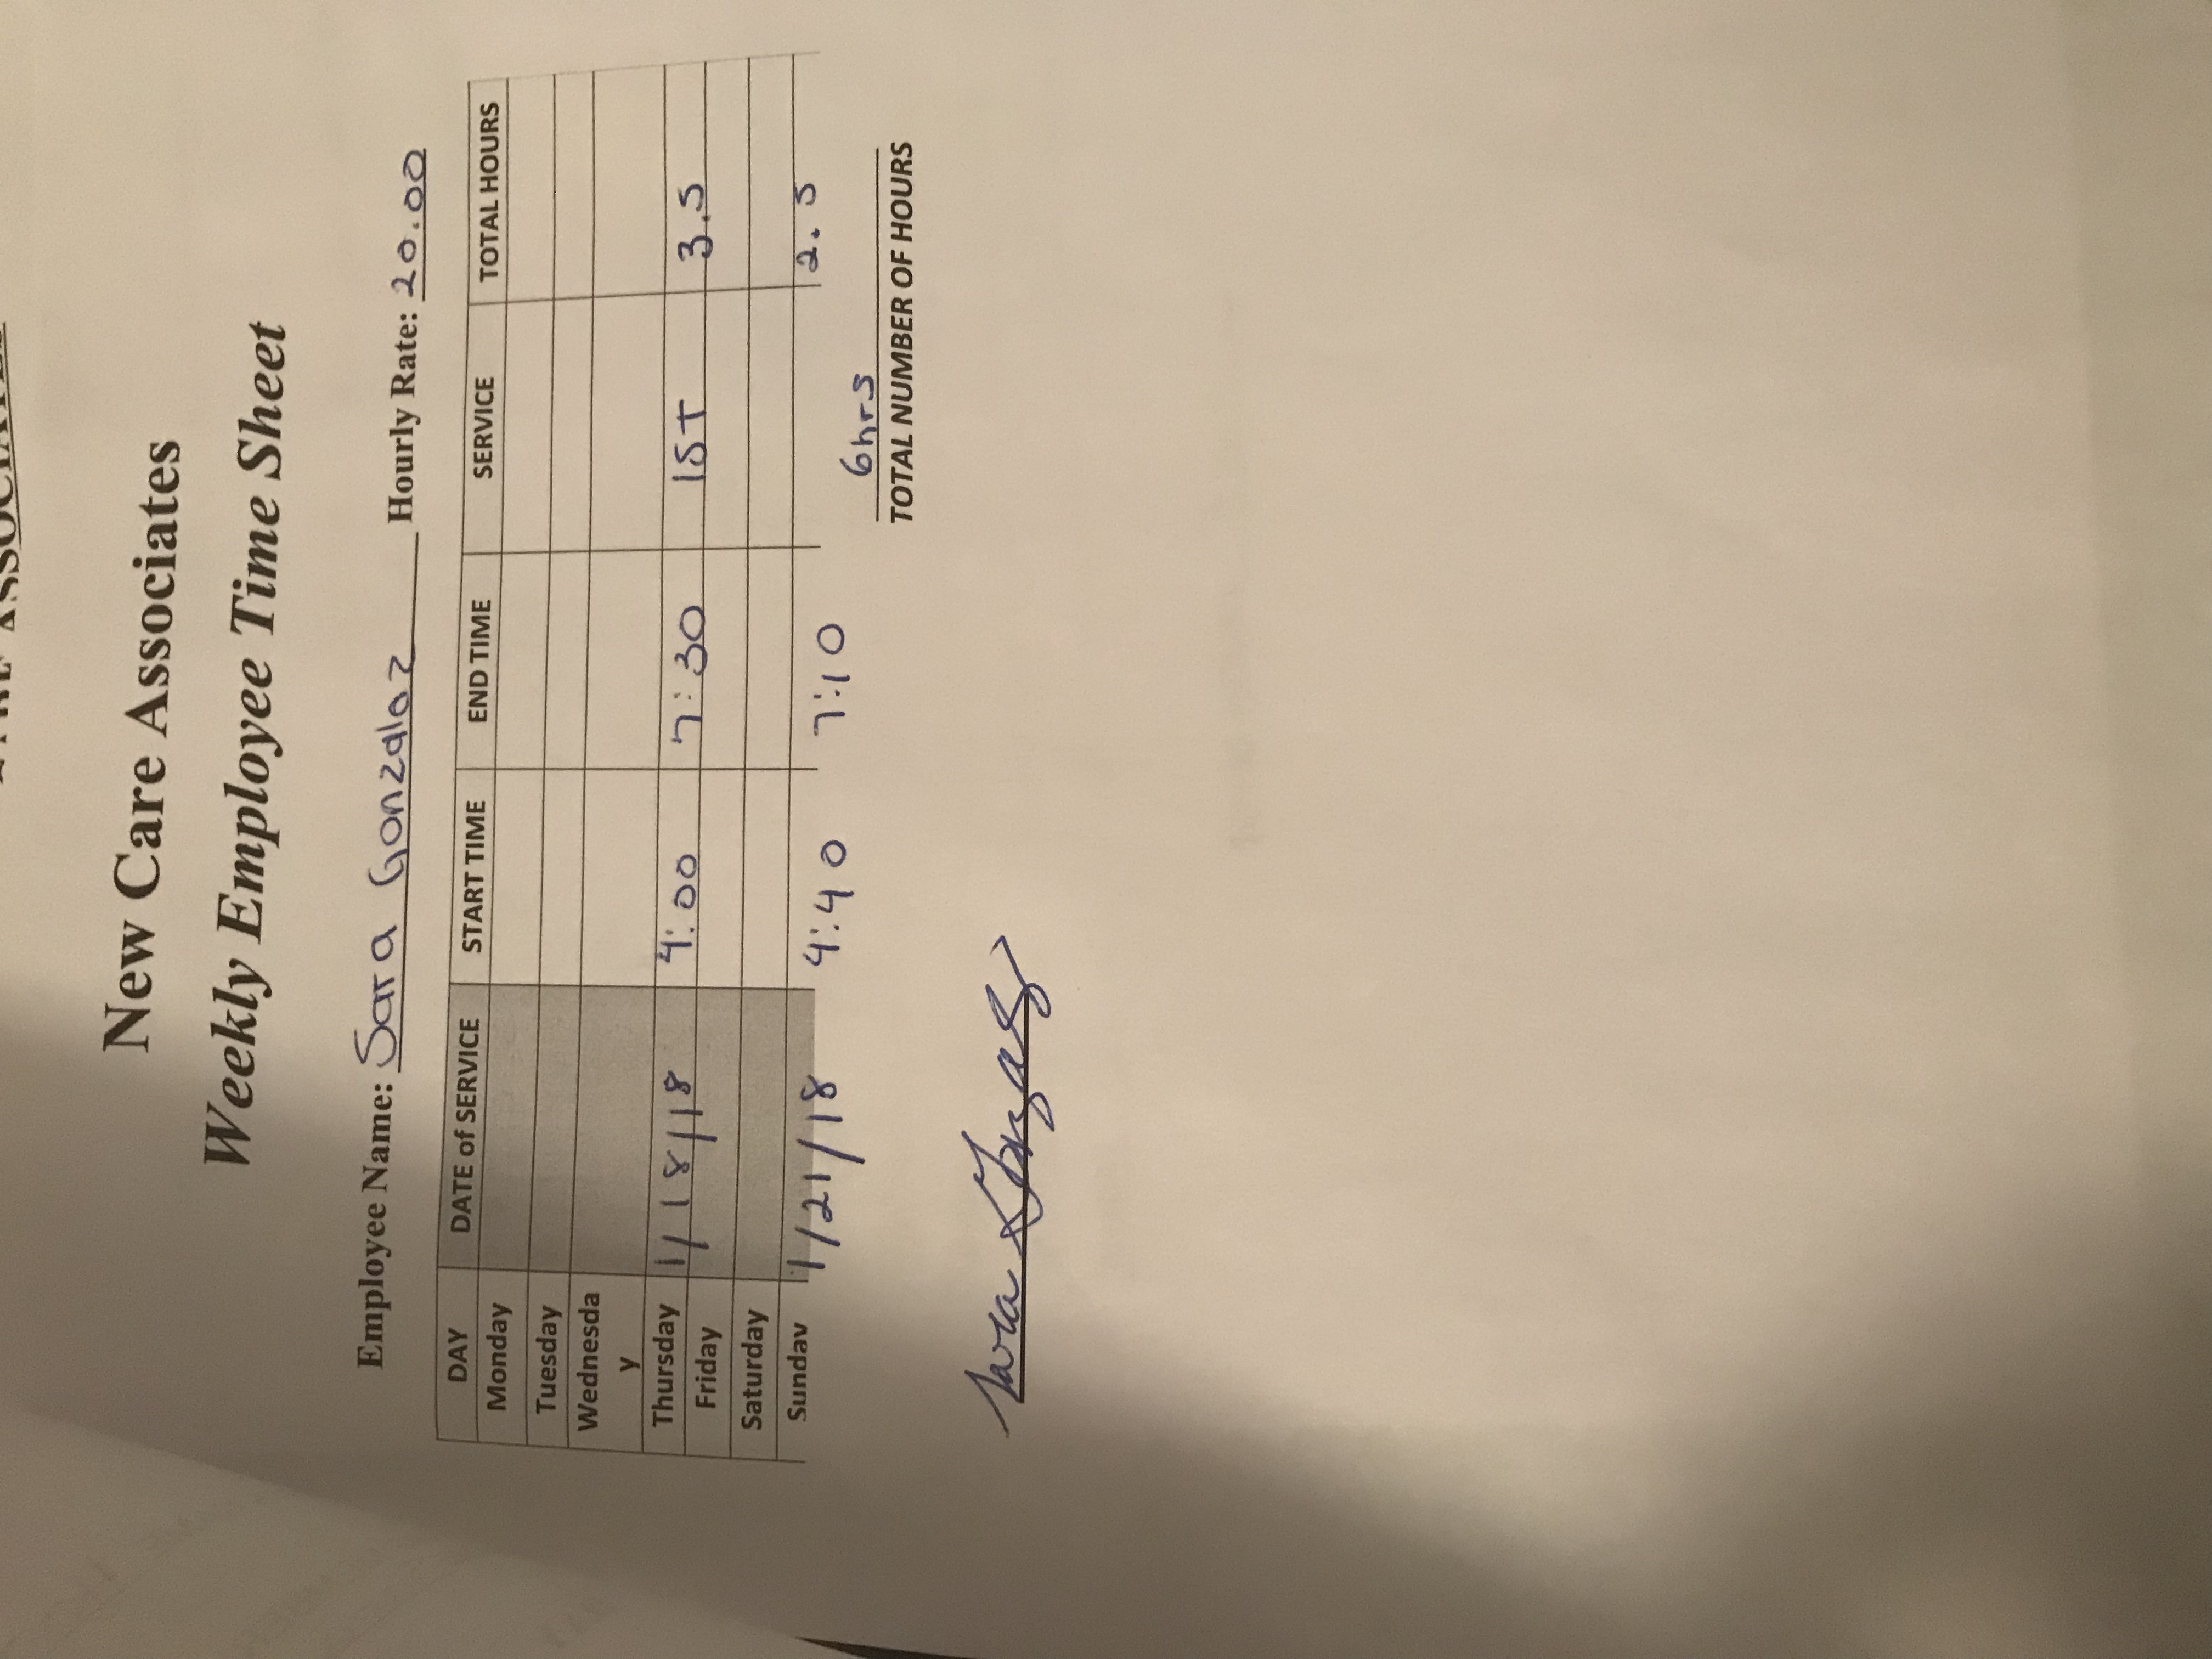 ASSOCIATES
New Care Associates
Weekly Employee Time Sheet
Employee Name: Sara Gonzalez Hourly Rate: 20.00
DAY DATE of SERVICE START TIME END TIME SERVICE TOTAL HOURS
Monday
Tuesday
Wednesda
y
Thursday 1/18/18 4:00 7:30 IST 3.5
Friday
Saturday
Sunday 1/21/18 4:40 7:10 2.5
6hrs
TOTAL NUMBER OF HOURS
Sara Gonzalez